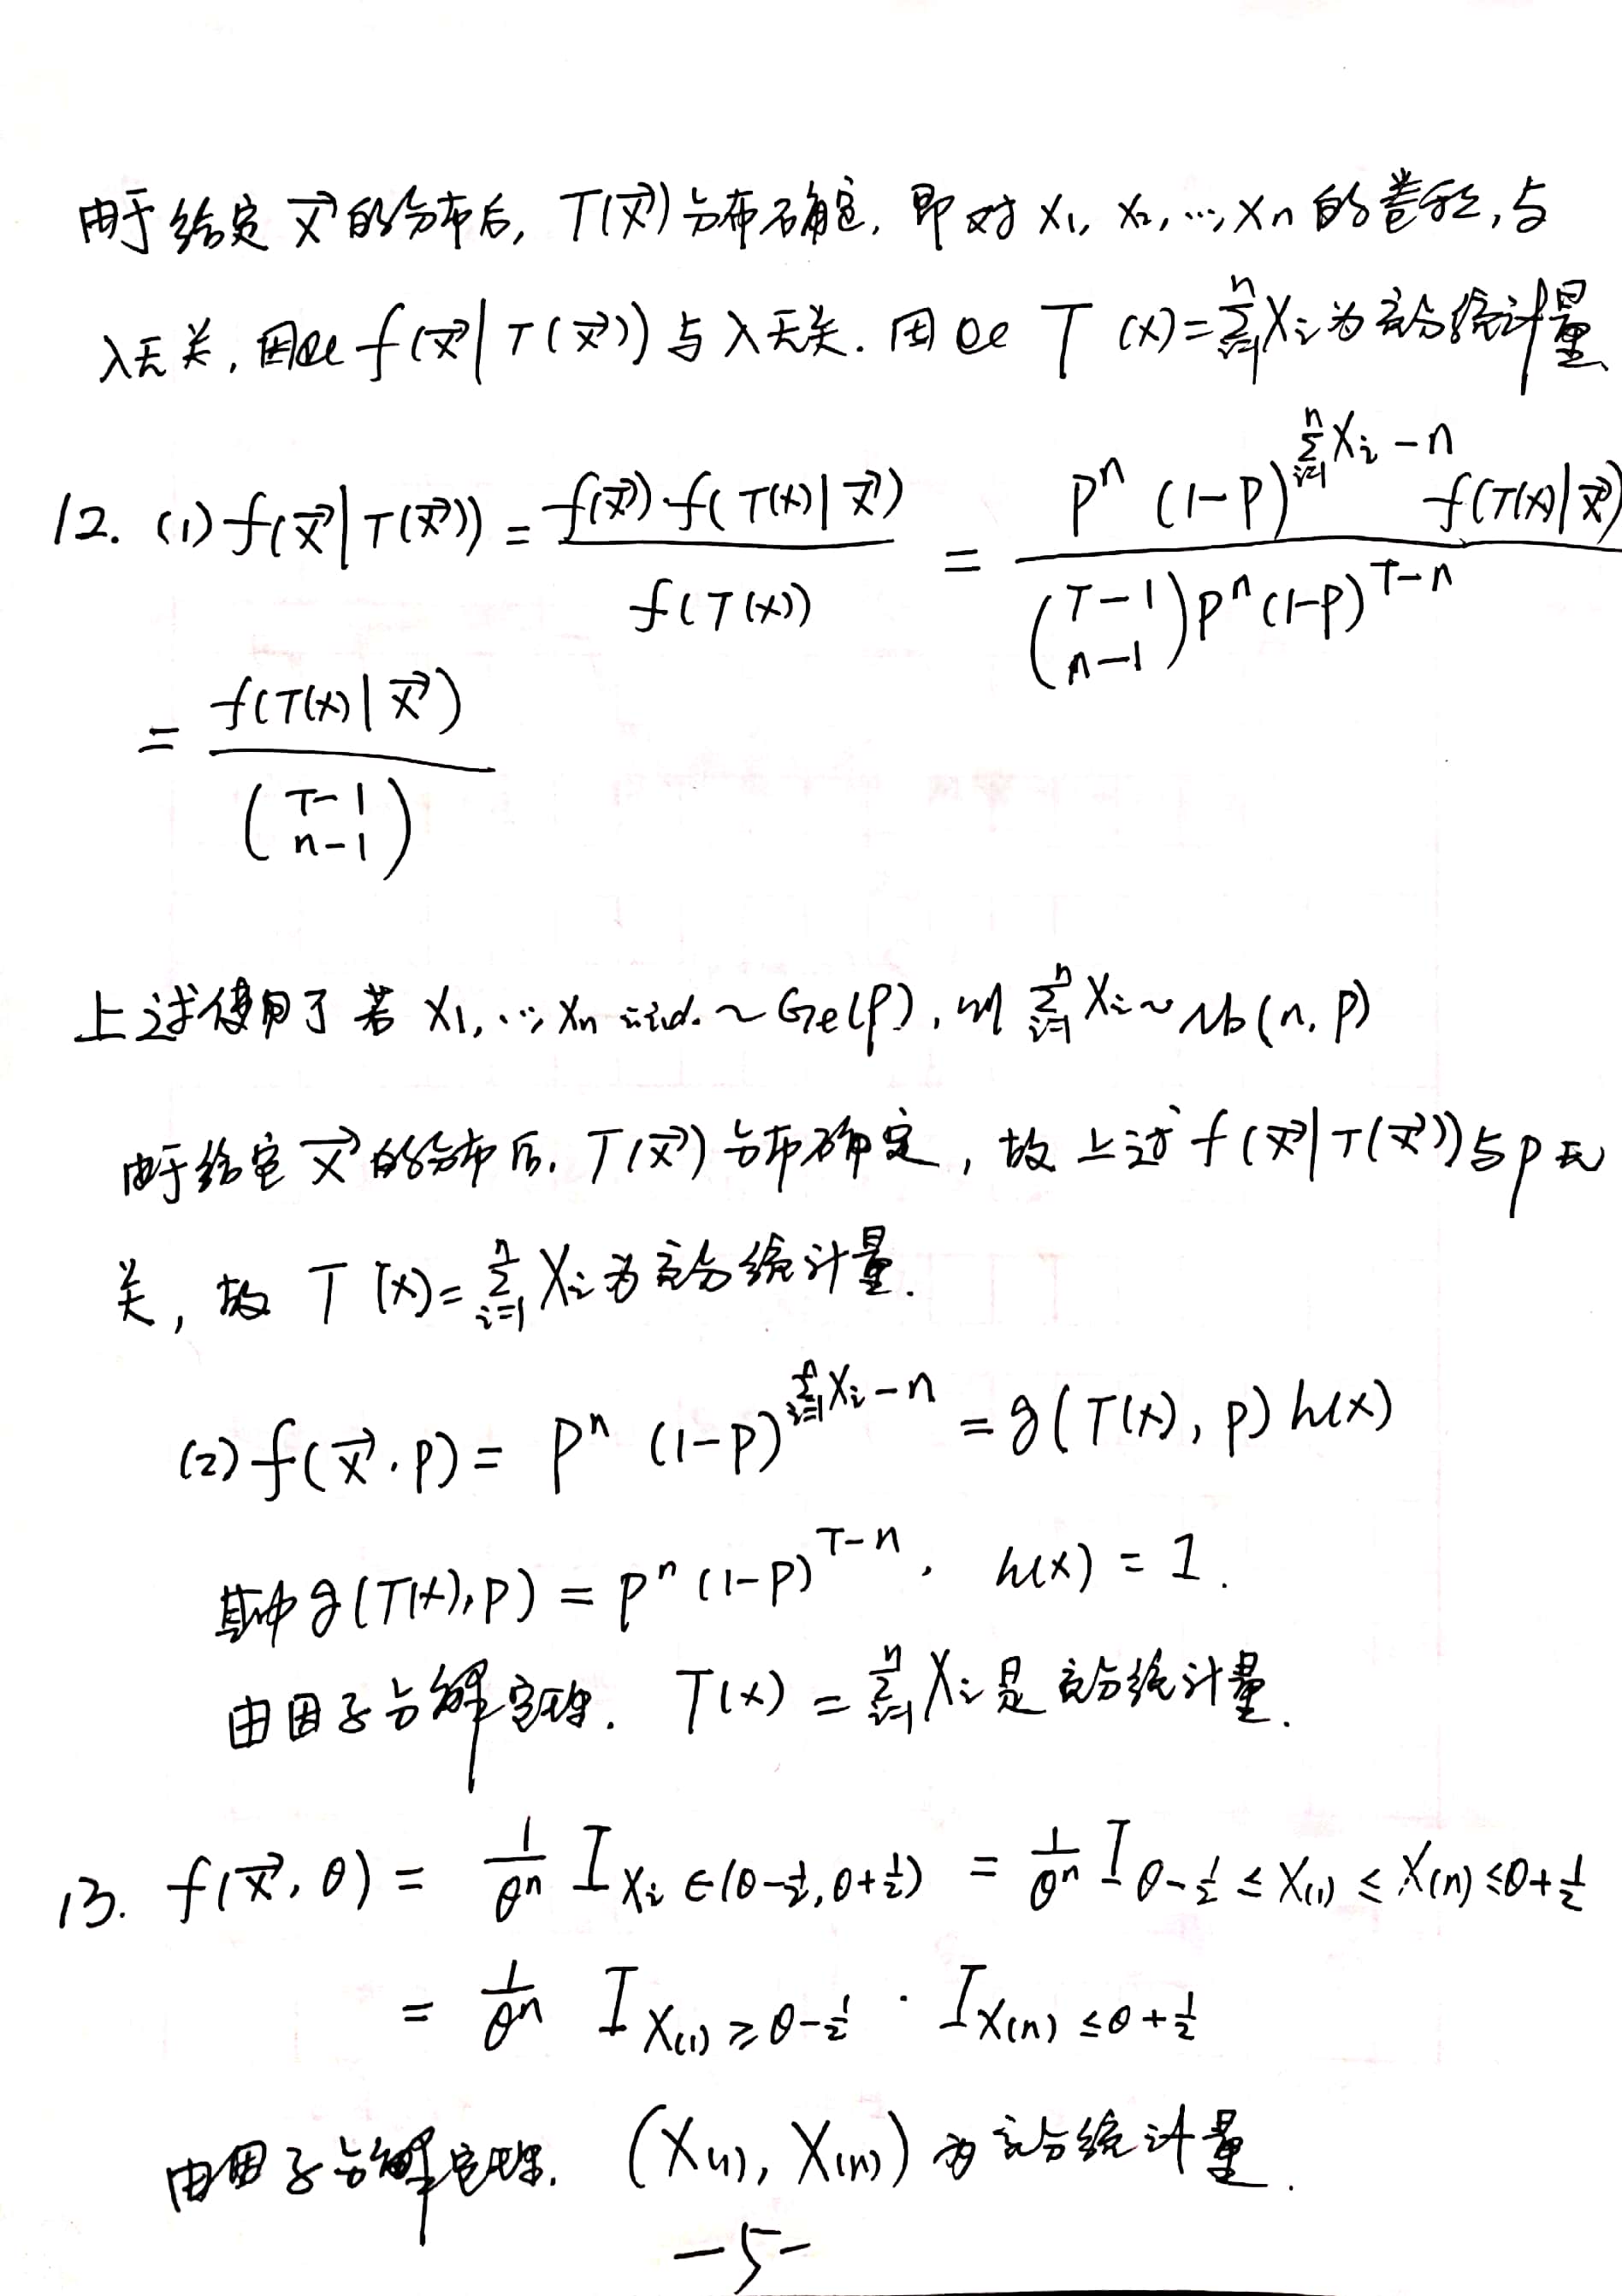 由于给定 X⃗ 的分布后, T(X⃗) 分布确定, 即对 X₁, X₂, …, Xn 的卷积, 与
λ无关, 因此 f(X⃗|T(X⃗)) 与 λ 无关. 因此 T (X)=∑ⁿᵢ₌₁Xᵢ 为充分统计量
12. (1) f(X⃗|T(X⃗)) = f(X⃗)·f(T(X)|X⃗) / f(T(X)) = pⁿ (1-p)^(∑ⁿᵢ₌₁Xᵢ-n) f(T(X)|X⃗) / (T-1 n-1) pⁿ (1-p)^(T-n)
= f(T(X)|X⃗) / (T-1 n-1)
上述使用了若 X₁, …, Xn i.i.d. ~ Ge(p), 则 ∑ⁿᵢ₌₁ Xᵢ ~ Nb(n, p)
由于给定 X⃗ 的分布后. T(X⃗) 分布确定, 故上述 f(X⃗|T(X⃗)) 与 p 无
关, 故 T (X)=∑ⁿᵢ₌₁ Xᵢ 为充分统计量.
(2) f(X⃗, p) = pⁿ (1-p)^(∑ⁿᵢ₌₁Xᵢ-n) = g(T(X), p) h(X)
其中 g(T(X), p) = pⁿ (1-p)^(T-n), h(X) = 1.
由因子分解定理. T(X) = ∑ⁿᵢ₌₁ Xᵢ 是充分统计量.
13. f(X⃗, θ) = 1/θⁿ I Xᵢ∈(θ-1/2, θ+1/2) = 1/θⁿ I θ-1/2 ≤ X(1) ≤ X(n) ≤ θ+1/2
= 1/θⁿ I X(1) ≥ θ-1/2 · I X(n) ≤ θ+1/2
由因子分解定理. (X(1), X(n)) 为充分统计量.
-5-